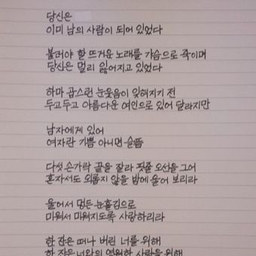 당신은
이미 남의 사람이 되어 있었다
불러야 할 뜨거운 노래를 가슴으로 죽이며
당신은 멀리 잃어지고 있었다
하마 곱스런 눈웃음이 잊혀지기 전
두고두고 아름다운 여인으로 있어 달라지만
남자에게 있어
여자란 기쁨 아니면 슬픔
다섯 손가락 끝을 잘라 핏물 오선을 그어
혼자서도 외롭지 않을 밤에 울어 보리라
울어서 멍든 눈흘김으로
미워서 미워지도록 사랑하리라
한 잔은 떠나 버린 너를 위해
한 잔은 너와의 영원한 사랑을 위해